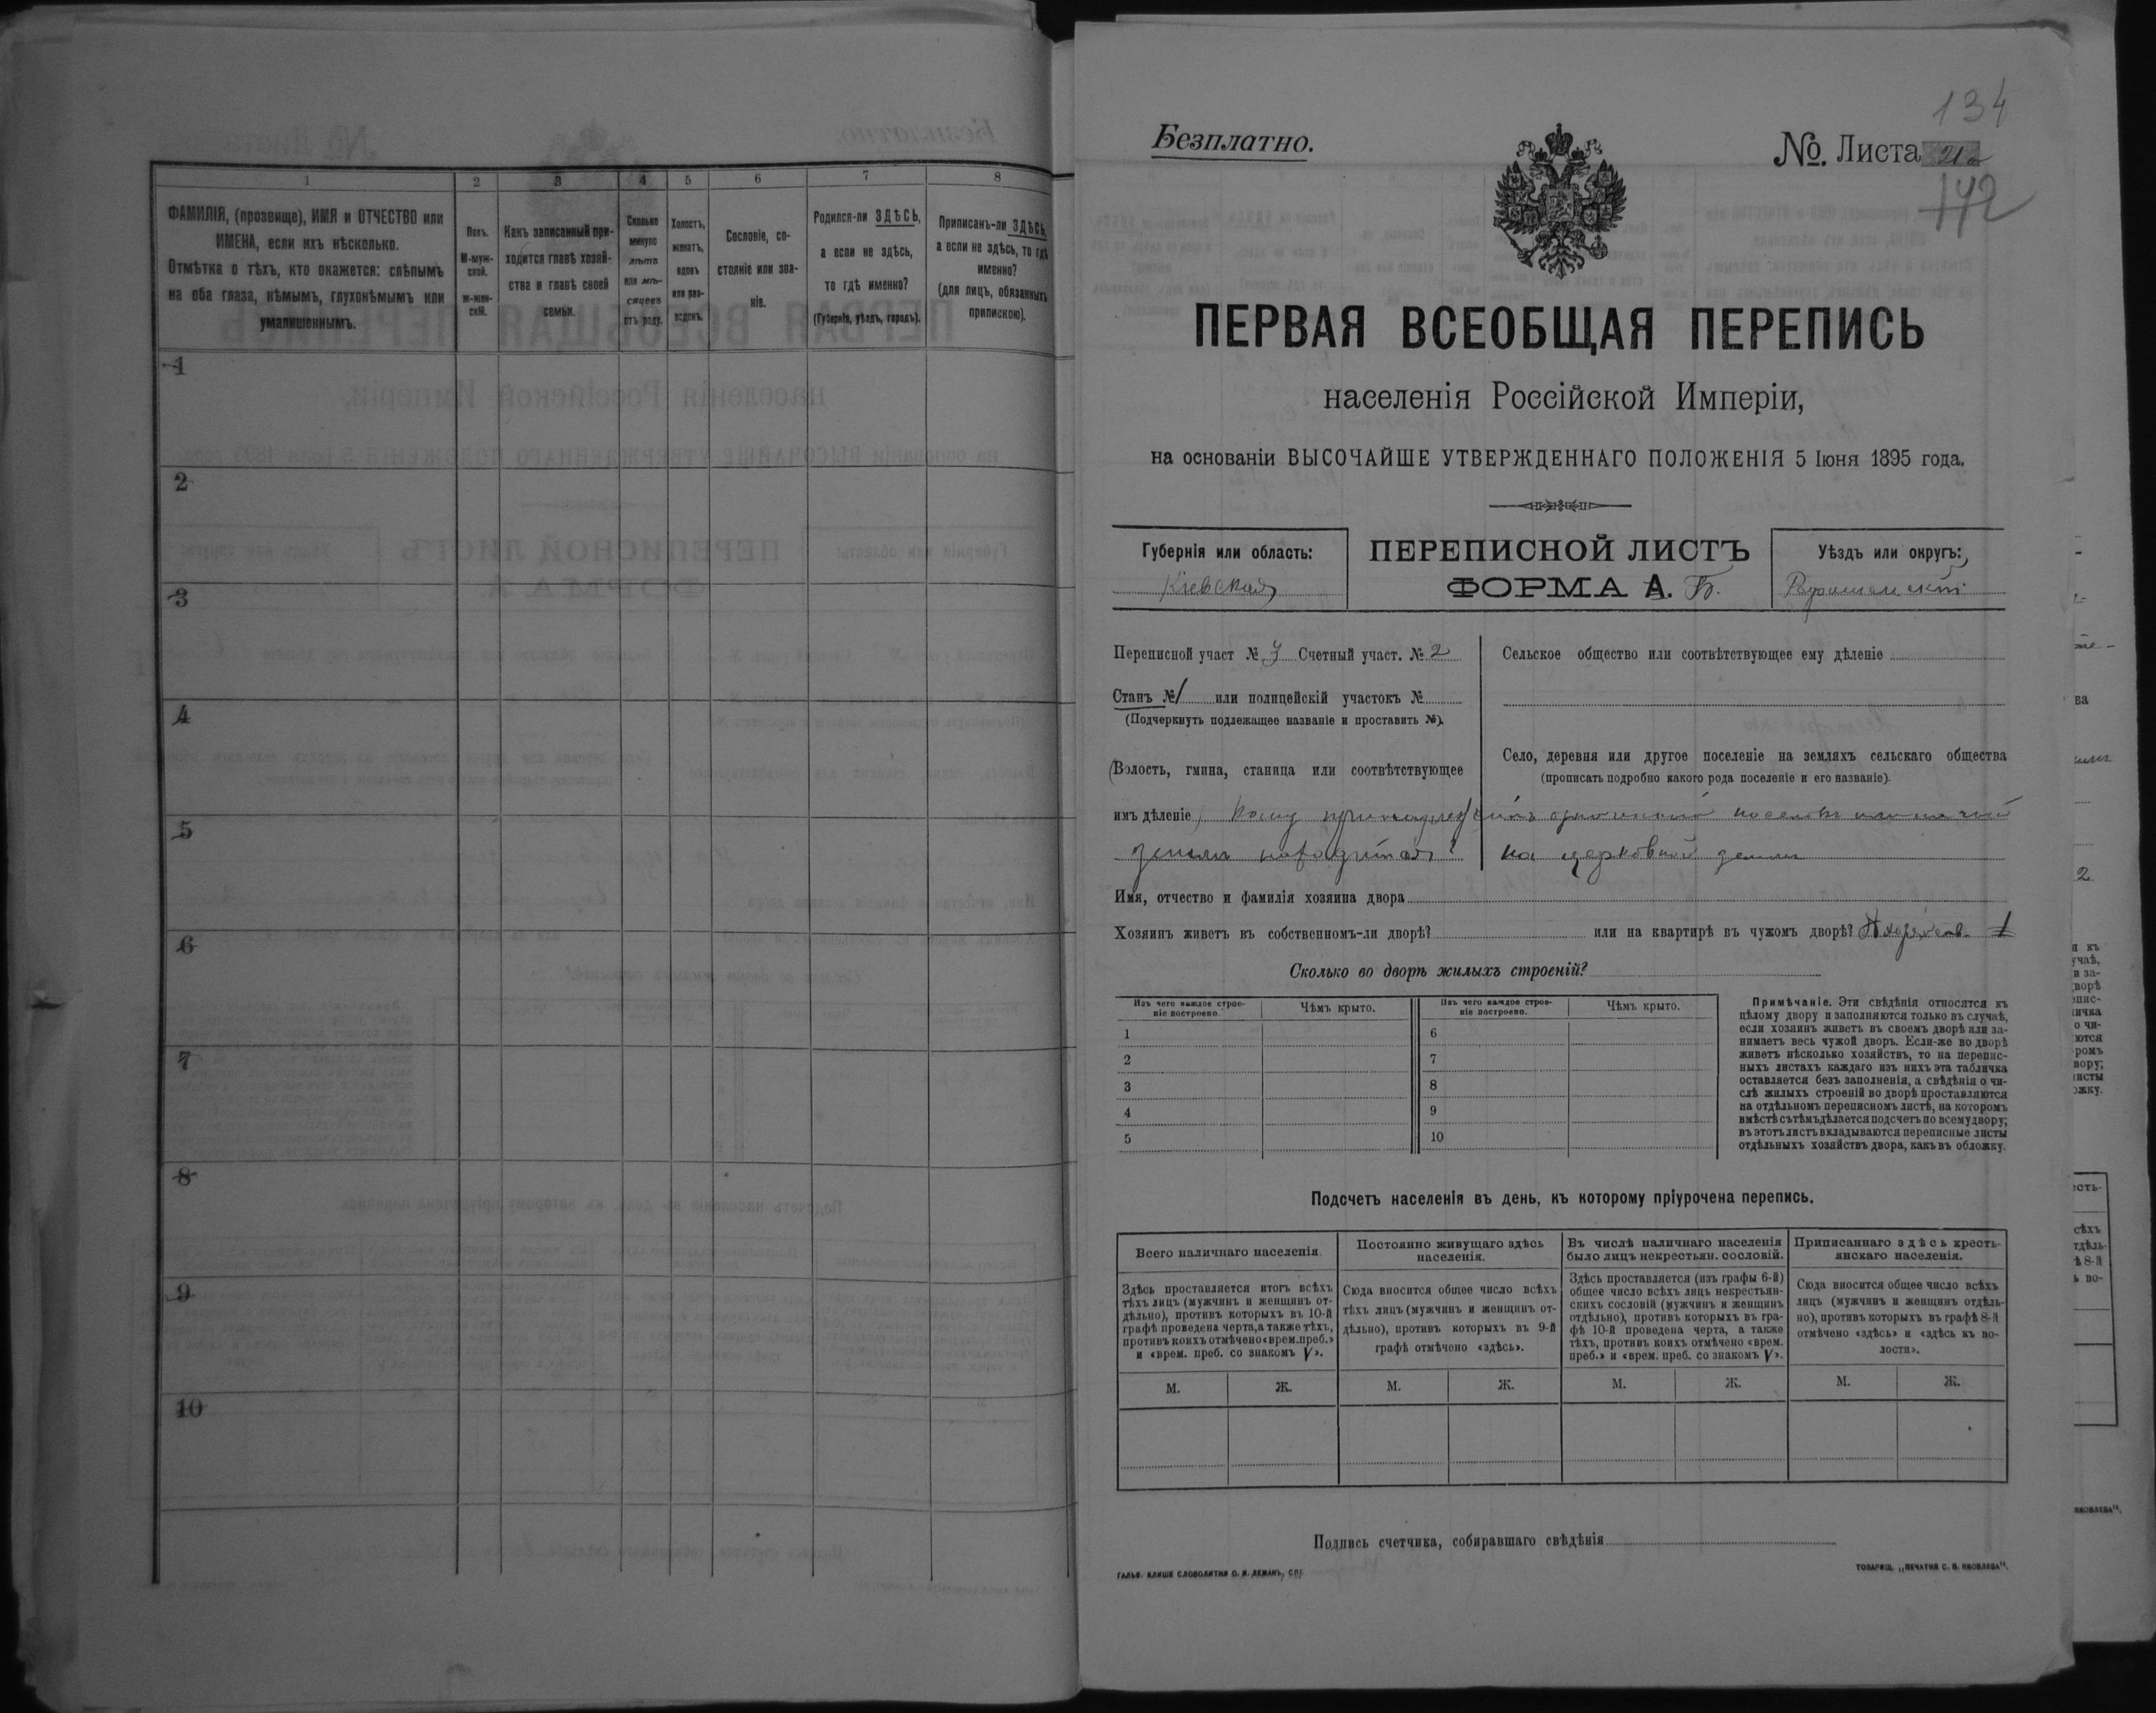 1 2 3 4 5 6 7 8
ФАМИЛІЯ, (прозвище), ИМЯ и ОТЧЕСТВО или
ИМЕНА, если ихъ нѣсколько.
Отмѣтка о тѣхъ, кто окажется: слѣпымъ
на оба глаза, нѣмымъ, глухонѣмымъ или
умалишеннымъ.
Полъ.
М-муж-
ской.
ж-жен-
скій.
Какъ записанный при-
ходится главѣ хозяй-
ства и главѣ своей
семьи.
Сколько
минуло
лѣтъ
или мѣ-
сяцевъ
отъ роду.
Холостъ,
женатъ,
вдовъ
или раз-
веденъ.
Сословіе, со-
стояніе или зва-
ніе.
Родился-ли ЗДѢСЬ,
а если не здѣсь,
то гдѣ именно?
(Губернія, уѣздъ, городъ).
Приписанъ-ли ЗДѢСЬ,
а если не здѣсь, то гдѣ
именно?
(для лицъ, обязанныхъ
припискою).
1
2
3
4
5
6
7
8
9
10
134
Безплатно.
№. Листа
142
ПЕРВАЯ ВСЕОБЩАЯ ПЕРЕПИСЬ
населенія Россійской Имперіи,
на основаніи ВЫСОЧАЙШЕ УТВЕРЖДЕННАГО ПОЛОЖЕНІЯ 5 Іюня 1895 года.
Губернія или область:
Кіевская
ПЕРЕПИСНОЙ ЛИСТЪ
ФОРМА А. Б.
Уѣздъ или округъ:
Переписной участ № 3 Счетный участ. № 2
Станъ № 1 или полицейскій участокъ №
(Подчеркнуть подлежащее названіе и проставить №).
(Волость, гмина, станица или соотвѣтствующее
имъ дѣленіе)
Сельское общество или соотвѣтствующее ему дѣленіе
Село, деревня или другое поселеніе на земляхъ сельскаго общества
(прописать подробно какого рода поселеніе и его названіе).
Кому принадлежитъ
земли находится? на церковной земли
Имя, отчество и фамилія хозяина двора
Хозяинъ живетъ въ собственномъ-ли дворѣ? или на квартирѣ въ чужомъ дворѣ?
Сколько во дворѣ жилыхъ строеній?
Изъ чего каждое строе-
ніе построено.
Чѣмъ крыто.
Изъ чего каждое строе-
ніе построено.
Чѣмъ крыто.
1 6
2 7
3 8
4 9
5 10
Примѣчаніе. Эти свѣдѣнія относятся къ
цѣлому двору и заполняются только въ случаѣ,
если хозяинъ живетъ въ своемъ дворѣ или за-
нимаетъ весь чужой дворъ. Если-же во дворѣ
живетъ нѣсколько хозяйствъ, то на перепис-
ныхъ листахъ каждаго изъ нихъ эта табличка
оставляется безъ заполненія, а свѣдѣнія о чи-
слѣ жилыхъ строеній во дворѣ проставляются
на отдѣльномъ переписномъ листѣ, на которомъ
вмѣстѣ съ тѣмъ дѣлается подсчетъ по всему двору;
въ этотъ листъ вкладываются переписные листы
отдѣльныхъ хозяйствъ двора, какъ въ обложку.
Подсчетъ населенія въ день, къ которому пріурочена перепись.
Всего наличнаго населенія.
Здѣсь проставляется итогъ всѣхъ
тѣхъ лицъ (мужчинъ и женщинъ от-
дѣльно), противъ которыхъ въ 10-й
графѣ проведена черта, а также тѣхъ,
противъ коихъ отмѣчено «врем. преб.»
и «врем. преб. со знакомъ V».
Постоянно живущаго здѣсь
населенія.
Сюда вносится общее число всѣхъ
тѣхъ лицъ (мужчинъ и женщинъ от-
дѣльно), противъ которыхъ въ 9-й
графѣ отмѣчено «здѣсь».
Въ числѣ наличнаго населенія
было лицъ некрестьян. сословій.
Здѣсь проставляется (изъ графы 6-й)
общее число всѣхъ лицъ некрестьян-
скихъ сословій (мужчинъ и женщинъ
отдѣльно), противъ которыхъ въ гра-
фѣ 10-й проведена черта, а также
тѣхъ, противъ коихъ отмѣчено «врем.
преб.» и «врем. преб. со знакомъ V».
Приписаннаго здѣсь кресть-
янскаго населенія.
Сюда вносится общее число всѣхъ
лицъ (мужчинъ и женщинъ отдѣль-
но), противъ которыхъ въ графѣ 8-й
отмѣчено «здѣсь» и «здѣсь въ во-
лости».
М. Ж. М. Ж. М. Ж. М. Ж.
Подпись счетчика, собиравшаго свѣдѣнія
ГАЛЬВ. КЛИШЕ СЛОВОЛИТНИ О. И. ЛЕМАНЪ, СПБ.
ТОВАРИЩ. „ПЕЧАТНЯ С. П. ЯКОВЛЕВА".